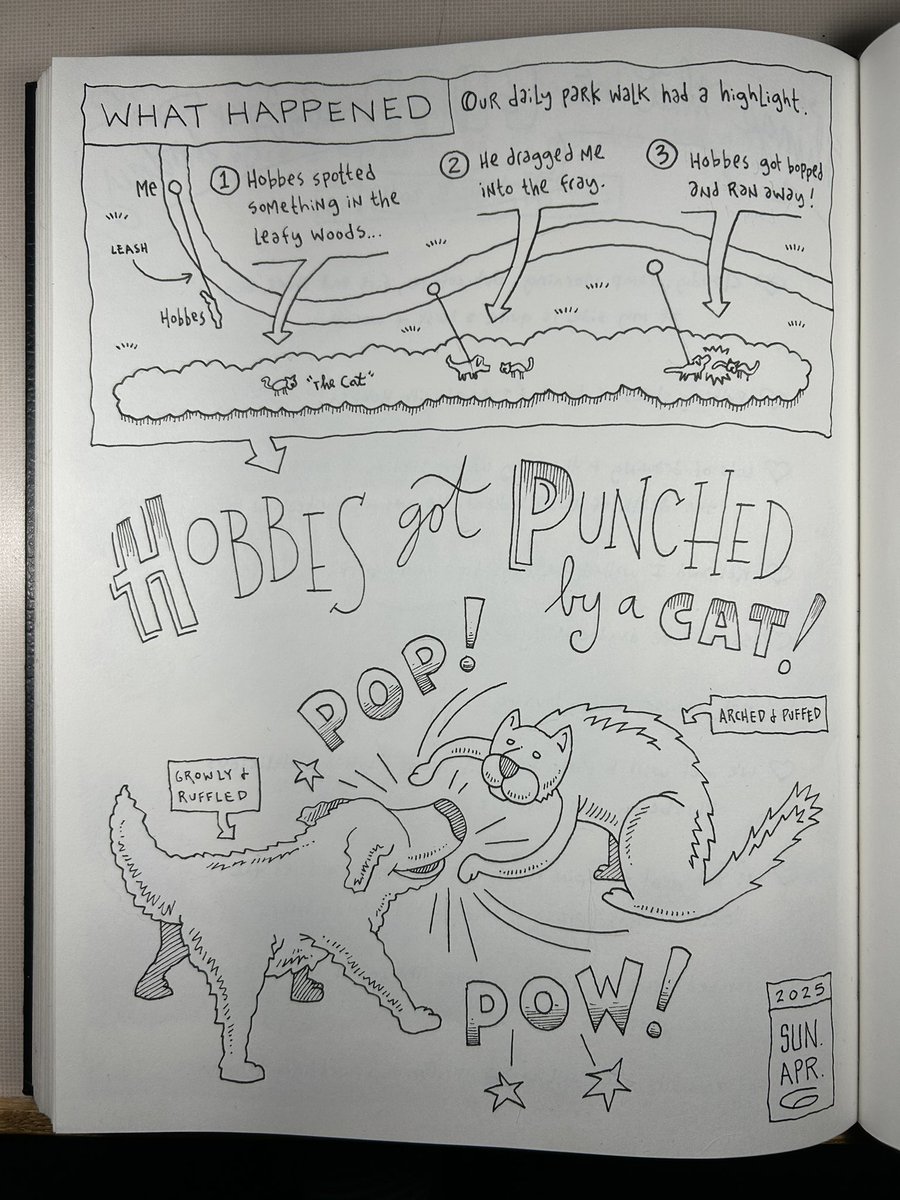 WHAT HAPPENED
Our daily park walk had a highlight.
Me
① Hobbes spotted
something in the
leafy woods...
② He dragged me
into the fray.
③ Hobbes got bopped
and ran away!
LEASH
Hobbes
"The Cat"
HOBBES got PUNCHED
by a CAT!
POP!
ARCHED & PUFFED
GROWLY &
RUFFLED
POW!
2025
SUN.
APR.
6